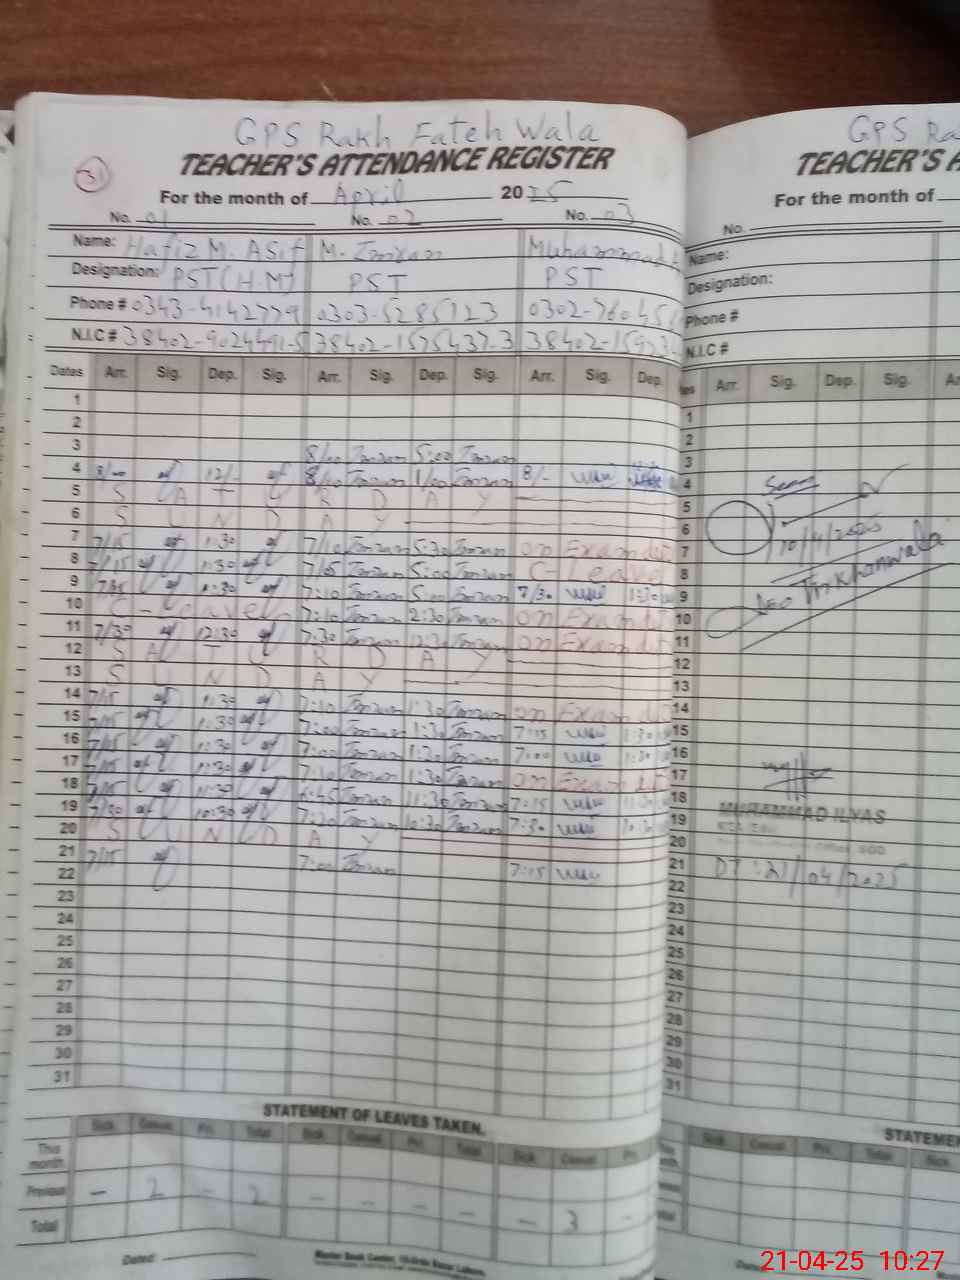 GPS Rakh Fateh Wala
TEACHER'S ATTENDANCE REGISTER
31
For the month of April 2025
No. 01 No. 02 No. 03
Name: Hafiz M. Asif M. Imran Muhammad
Designation: PST(H.M) PST PST
Phone # 0343-4142779 0303-5285723 0302-76045
N.I.C # 38402-9024491-5 38402-1575437-3 38402-159
Dates Arr. Sig. Dep. Sig. Arr. Sig. Dep. Sig. Arr. Sig. Dep.
1
2
3 8/00 Imran 5:00 Imran
4 8/00 12/- 8/00 Imran 1/00 Imran 8/-
5 S A T U R D A Y
6 S U N D A Y
7 7/15 1:30 7/10 Imran 5:30 Imran on Exam dut
8 7/15 1:30 7/05 Imran 5:00 Imran C-Leave
9 7/15 1:30 7:10 Imran 5:00 Imran 7/30 1:30
10 C-Leave 7:10 Imran 2:30 Imran on Exam dut
11 7/30 12:30 7:30 Imran 12:3 Imran on Exam dut
12 S A T U R D A Y
13 S U N D A Y
14 7/15 1:30 7:10 Imran 1:30 Imran on Exam dut
15 7/15 1:30 7:00 Imran 1:30 Imran 7:15 1:30
16 7/15 1:30 7:00 Imran 1:30 Imran 7:00 1:30
17 7/15 1:30 7:10 Imran 1:30 Imran on Exam dut
18 7/15 11:30 6:45 Imran 11:30 Imran 7:15
19 7/30 10:30 7:20 Imran 10:30 Imran 7:30
20 S U N D A Y
21 7/15 7:00 Imran 7:15
22
23
24
25
26
27
28
29
30
31
STATEMENT OF LEAVES TAKEN.
Sick Casual Pri. Total Sick Casual Pri. Total Sick Casual Pri.
This month
Previous - 2 - 2 - - - - - 3 -
Total
Dated:
GPS Ra
TEACHER'S A
For the month of
No.
Name:
Designation:
Phone #
N.I.C #
Arr. Sig. Dep. Sig.
1
2
3
4
5 Seen
6
7
8
9
10
11
12
13
14
15
16
17
18
19 MUHAMMAD ILYAS
20
21
22 DT: 21/04/2025
23
24
25
26
27
28
29
30
31
STATEME
Sick Casual Pri. Total Sick
21-04-25 10:27